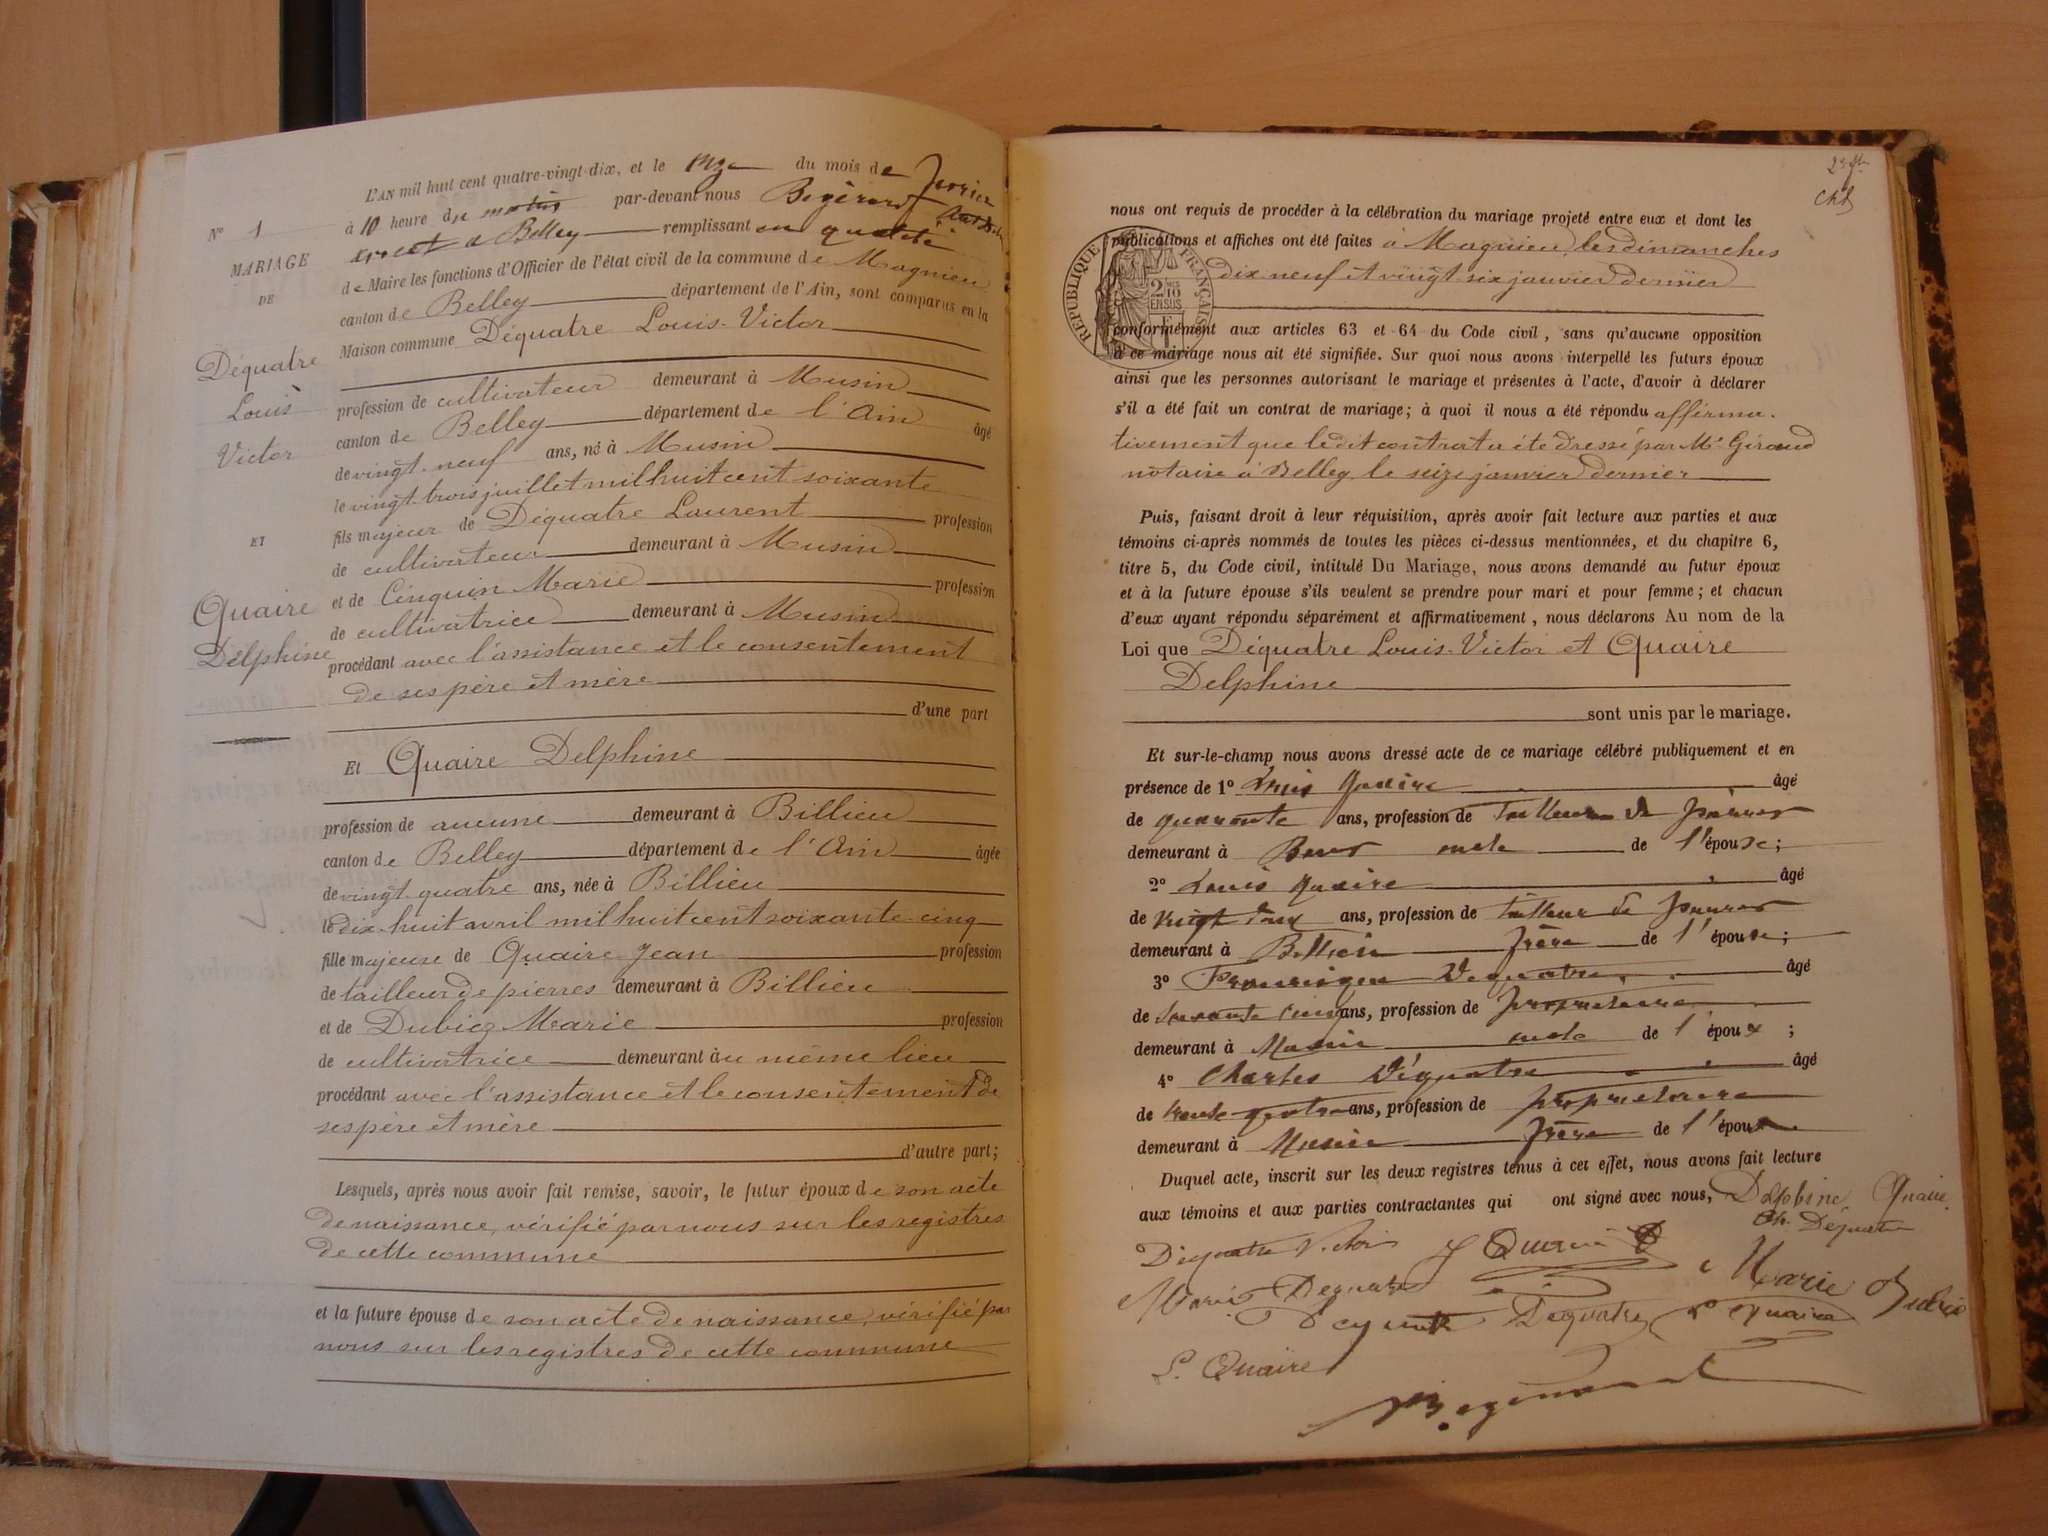 N° 1
MARIAGE
DE
Déquatre
Louis
Victor
ET
Quaire
Delphine
L'AN mil huit cent quatre-vingt-dix, et le onze du mois de février
à 10 heure du matin par-devant nous
à Belley remplissant en qualité
de Maire les fonctions d'Officier de l'état civil de la commune de Magnieu
canton de Belley département de l'Ain, sont comparus en la
Maison commune Déquatre Louis-Victor
profession de cultivateur demeurant à Musin
canton de Belley département de l'Ain âgé
de vingt-neuf ans, né à Musin
le vingt-trois juillet mil huit cent soixante
fils majeur de Déquatre Laurent profession
de cultivateur demeurant à Musin
et de Cinquin Marie profession
de cultivatrice demeurant à Musin
procédant avec l'assistance et le consentement
de ses père et mère
d'une part
Et Quaire Delphine
profession de aucune demeurant à Billieu
canton de Belley département de l'Ain âgée
de vingt-quatre ans, née à Billieu
le dix-huit avril mil huit cent soixante-cinq
fille majeure de Quaire Jean profession
de tailleur de pierres demeurant à Billieu
et de Dubiez Marie profession
de cultivatrice demeurant au même lieu
procédant avec l'assistance et le consentement de
ses père et mère
d'autre part;
Lesquels, après nous avoir fait remise, savoir, le futur époux de son acte
de naissance, vérifié par nous sur les registres
de cette commune
et la future épouse de son acte de naissance, vérifié par
nous sur les registres de cette commune
nous ont requis de procéder à la célébration du mariage projeté entre eux et dont les
publications et affiches ont été faites à Magnieu, les dimanches
dix-neuf et vingt-six janvier dernier
RÉPUBLIQUE FRANÇAISE
2 10
EN SUS
conformément aux articles 63 et 64 du Code civil, sans qu'aucune opposition
à ce mariage nous ait été signifiée. Sur quoi nous avons interpellé les futurs époux
ainsi que les personnes autorisant le mariage et présentes à l'acte, d'avoir à déclarer
s'il a été fait un contrat de mariage; à quoi il nous a été répondu affirma-
tivement que ledit contrat a été dressé par Me Giraud
notaire à Belley le seize janvier dernier
Puis, faisant droit à leur réquisition, après avoir fait lecture aux parties et aux
témoins ci-après nommés de toutes les pièces ci-dessus mentionnées, et du chapitre 6,
titre 5, du Code civil, intitulé Du Mariage, nous avons demandé au futur époux
et à la future épouse s'ils veulent se prendre pour mari et pour femme; et chacun
d'eux ayant répondu séparément et affirmativement, nous déclarons Au nom de la
Loi que Déquatre Louis-Victor et Quaire
Delphine
sont unis par le mariage.
Et sur-le-champ nous avons dressé acte de ce mariage célébré publiquement et en
présence de 1° Louis Quaire âgé
de quarante ans, profession de Tailleur de pierres
demeurant à oncle de l'épouse;
2° Louis Quaire âgé
de vingt deux ans, profession de tailleur de pierres
demeurant à Billieu frère de l'épouse;
3° Déquatre âgé
de soixante cinq ans, profession de propriétaire
demeurant à Musin oncle de l'époux;
4° Charles Déquatre âgé
de trente-quatre ans, profession de propriétaire
demeurant à Musin frère de l'époux
Duquel acte, inscrit sur les deux registres tenus à cet effet, nous avons fait lecture
aux témoins et aux parties contractantes qui ont signé avec nous, Delphine Quaire
Ch. Déquatre
Déquatre Victor J Quaire
Marie Dequatre Marie
Dequatre L Quaire
L. Quaire